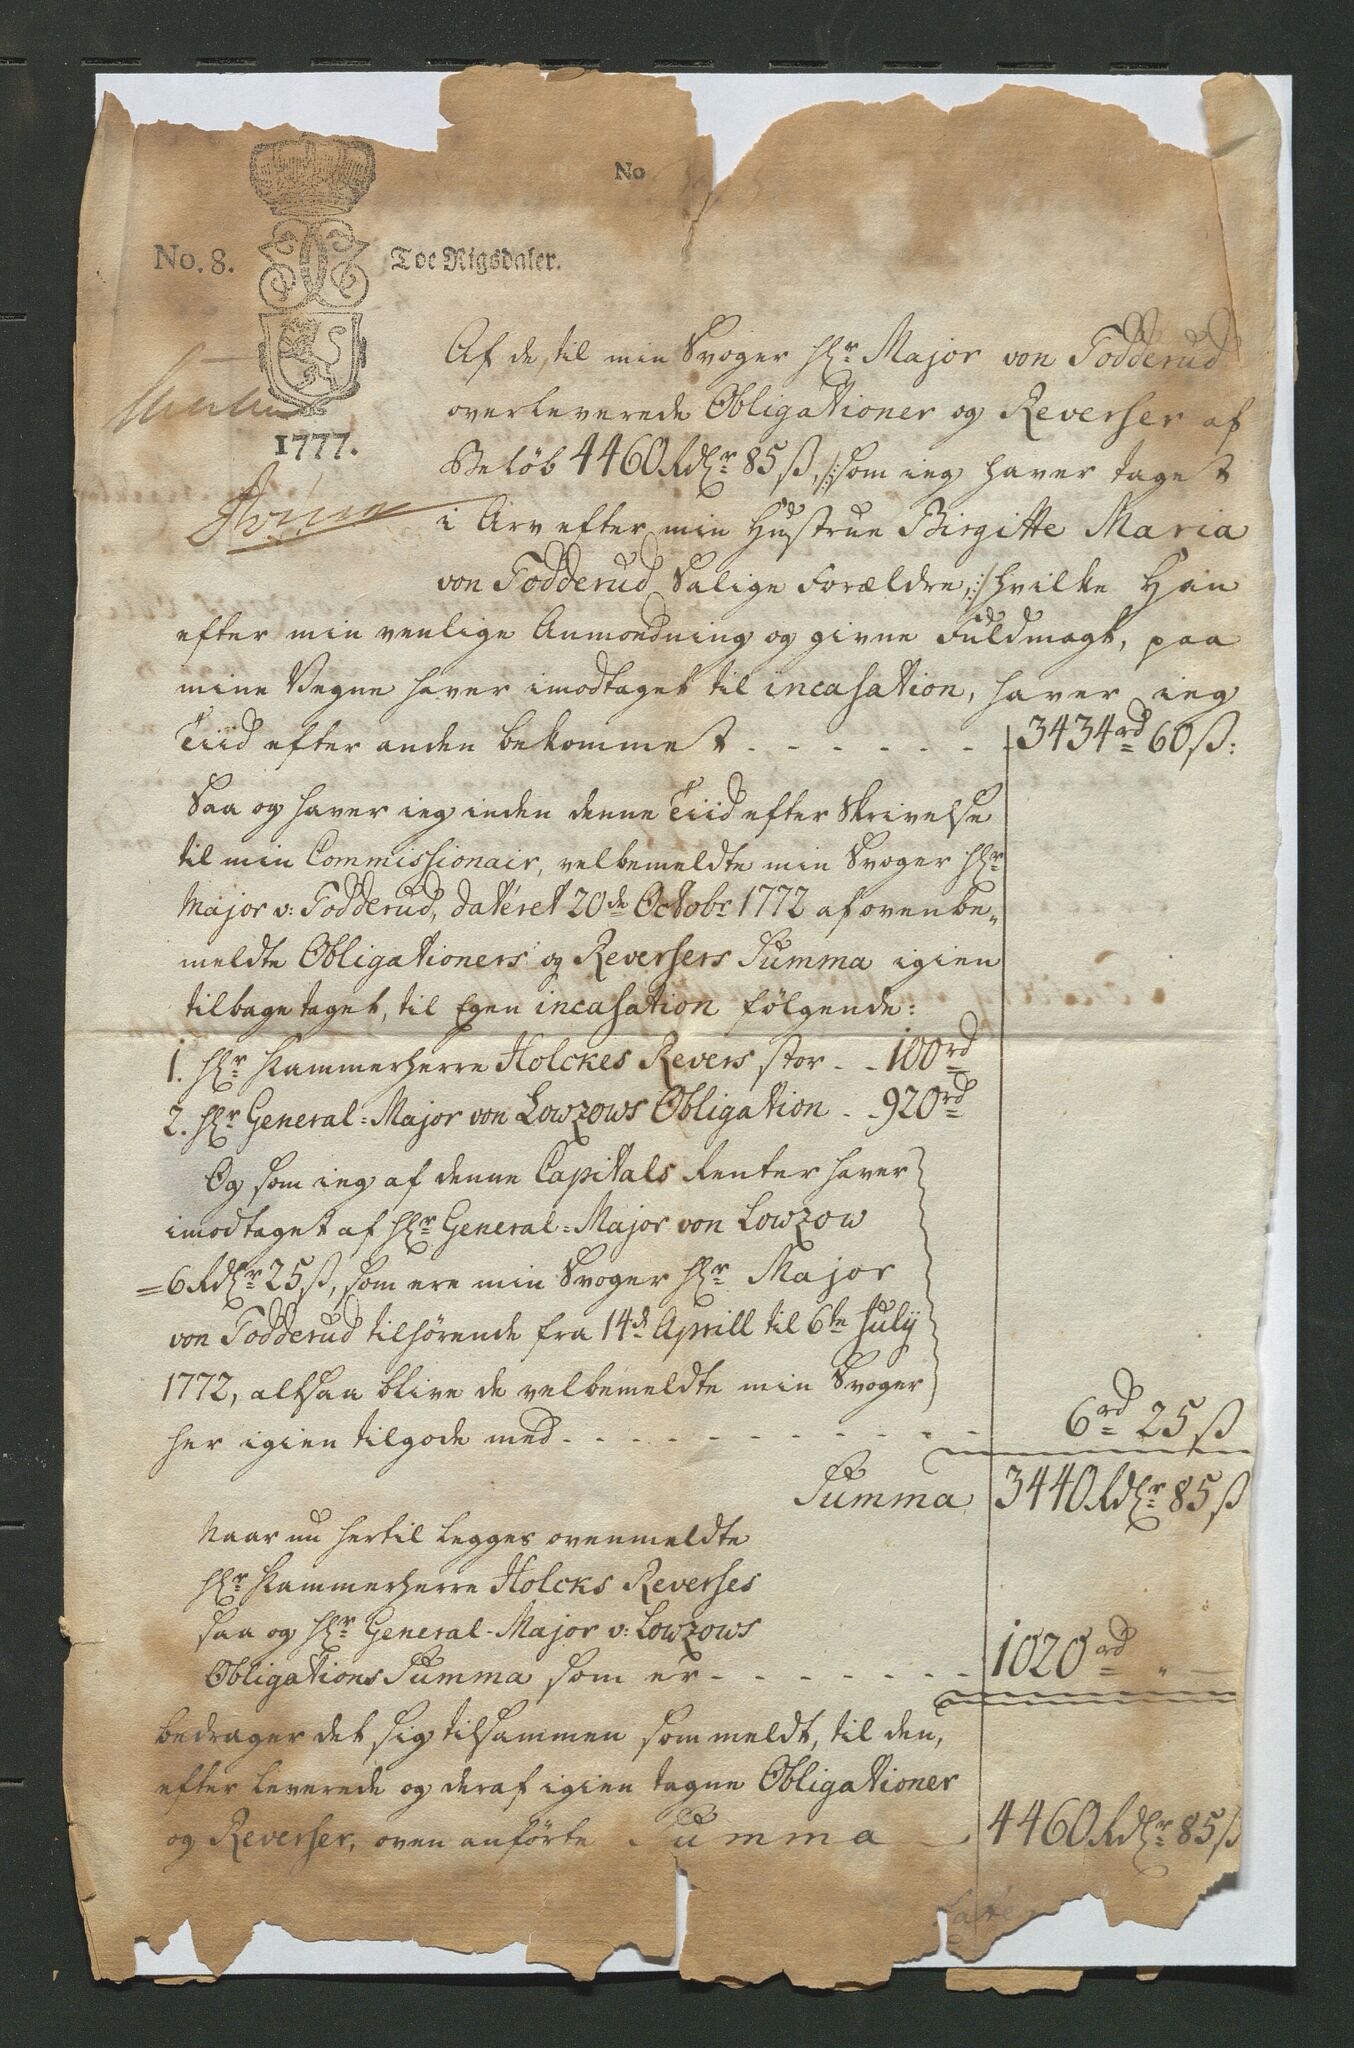 No
No. 8.
Toe Rigsdaler.
1777.
Af de, til min Svoger Hr. Major von Todderud
overleverede Obligationer og Reverser af
Beløb 4460 Rdlr. 85 ß, /: som ieg haver taget
i Arv efter min Hustrue Birgitte Maria
von Todderud Salige Forældre, :/ hvilke Han
efter min venlige Anmoedning og givne Fuldmagt, paa
mine Vegne haver imodtaget til incasation, haver ieg
Tiid efter anden bekommet - - - - - - 3434 rd 60 ß:
Saa og haver ieg inden denne Tiid efter Skrivelse
til min Commissionair, velbemeldte min Svoger Hr.
Major v: Todderud, dateret 20de Octobr 1772 af ovenbe-
meldte Obligationers og Reversers Summa igien
tilbage taget, til Egen incasation følgende:
1. Hr. Kammerherre Holckes Revers stor - - 100 rd
2. Hr. General=Major von Lowzows Obligation - - 920 rd
Og som ieg af denne Capitals Renter haver
imodtaget af Hr. General=Major von Lowzow
=6 Rdlr. 25 ß, som ere min Svoger Hr. Major
von Todderud tilhørende fra 14de Aprill til 6te July
1772, altsaa blive de velbemeldte min Svoger
her igien tilgode med - - - - - - - - - - - 6 rd 25 ß
Summa 3440 Rdlr. 85 ß
Naar nu hertil Legges ovenmeldte
Hr. Kammerherre Holcks Reverses
saa og Hr. General-Major v: Lowzows
Obligations Summa som er - - - - - - - - 1020 rd " —
bedrager det sig tilsammen som meldt, til den,
efter leverede og deraf igien tagne Obligationer
og Reverser, oven anførte Summa - 4460 Rdlr. 85 ß